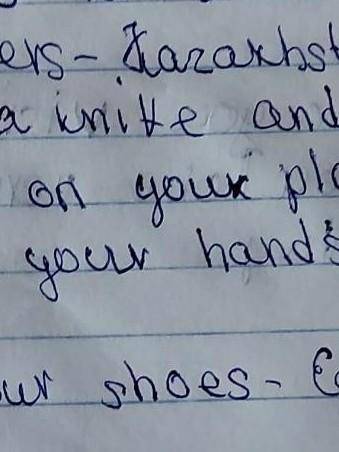 ers - Kazakhst
a knife and
on your pla
your hands
ur shoes - E